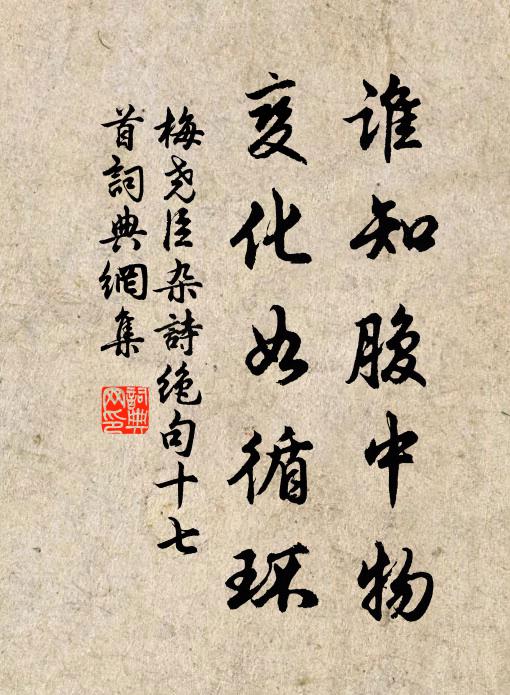 谁知腹中物
变化如循环
梅尧臣杂詩绝句十七
首詞典網集
詞典
网印